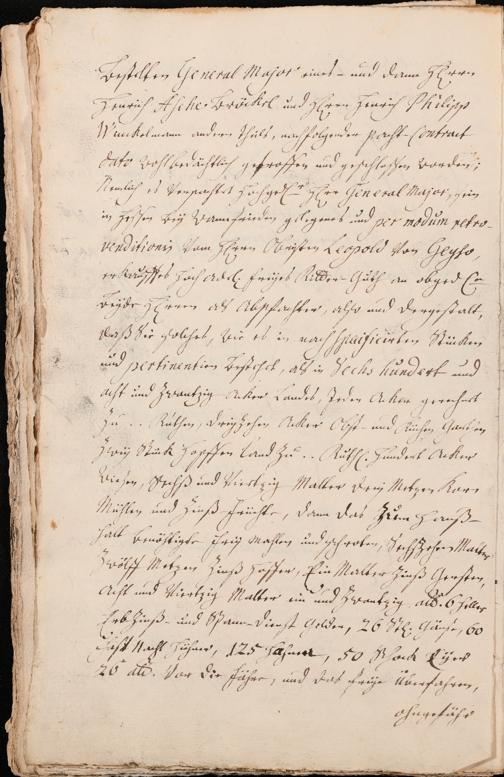 Bestelten General Major eines- und dann Herrn
Henrich Asche Bröckel und Herrn Henrich Philipp
Winckelmann andern Theils, nachfolgender pacht-Contract
dato wohlbedächtlich getroffen und geschlossen worden;
Nemlich es verpachtet Herr General Major, sein
in Hessen bey Wannfrieden gelegenes und per modum retro-
venditionis vom Herrn Obristen Leopold von Geyso,
erkaufftes Hoch Adel. freyes Ritter-Guth an obged.
beyde Herren als Abpfachter, also und dergestalt,
daß Sie solches, wie es in nach specificirten Stücken
und pertinentien bestehet, als in Sechs hundert und
acht und Zwantzig Acker Landes, jeden Acker gerechnet
zu .. Ruthen, dreyzehen Acker Obst- und Küchen Garten
Zwey Stück Hopffen Land zu .. Ruth. Hundert Acker
Wiesen, Sechs und Viertzig Malter drey Metzen Korn
Mühlen und Zinß Früchte, dann das zum Hauß-
halt benöthigte frey Mahlen und schroten, Sechszehen Malter
Zwölff Metzen Zinß Haffer, Ein Malter Zinß Gersten,
Acht und Viertzig Malter ein und Zwantzig alb. 6 Heller
Erbzinß- und Dienst Gelder, 26 Stk. Gänse, 60
Hühner, 125 Hahnen, 50 Schock Eyer
26 alb. Vor die Fähre, und das freye Überfahren,
ohngefähr